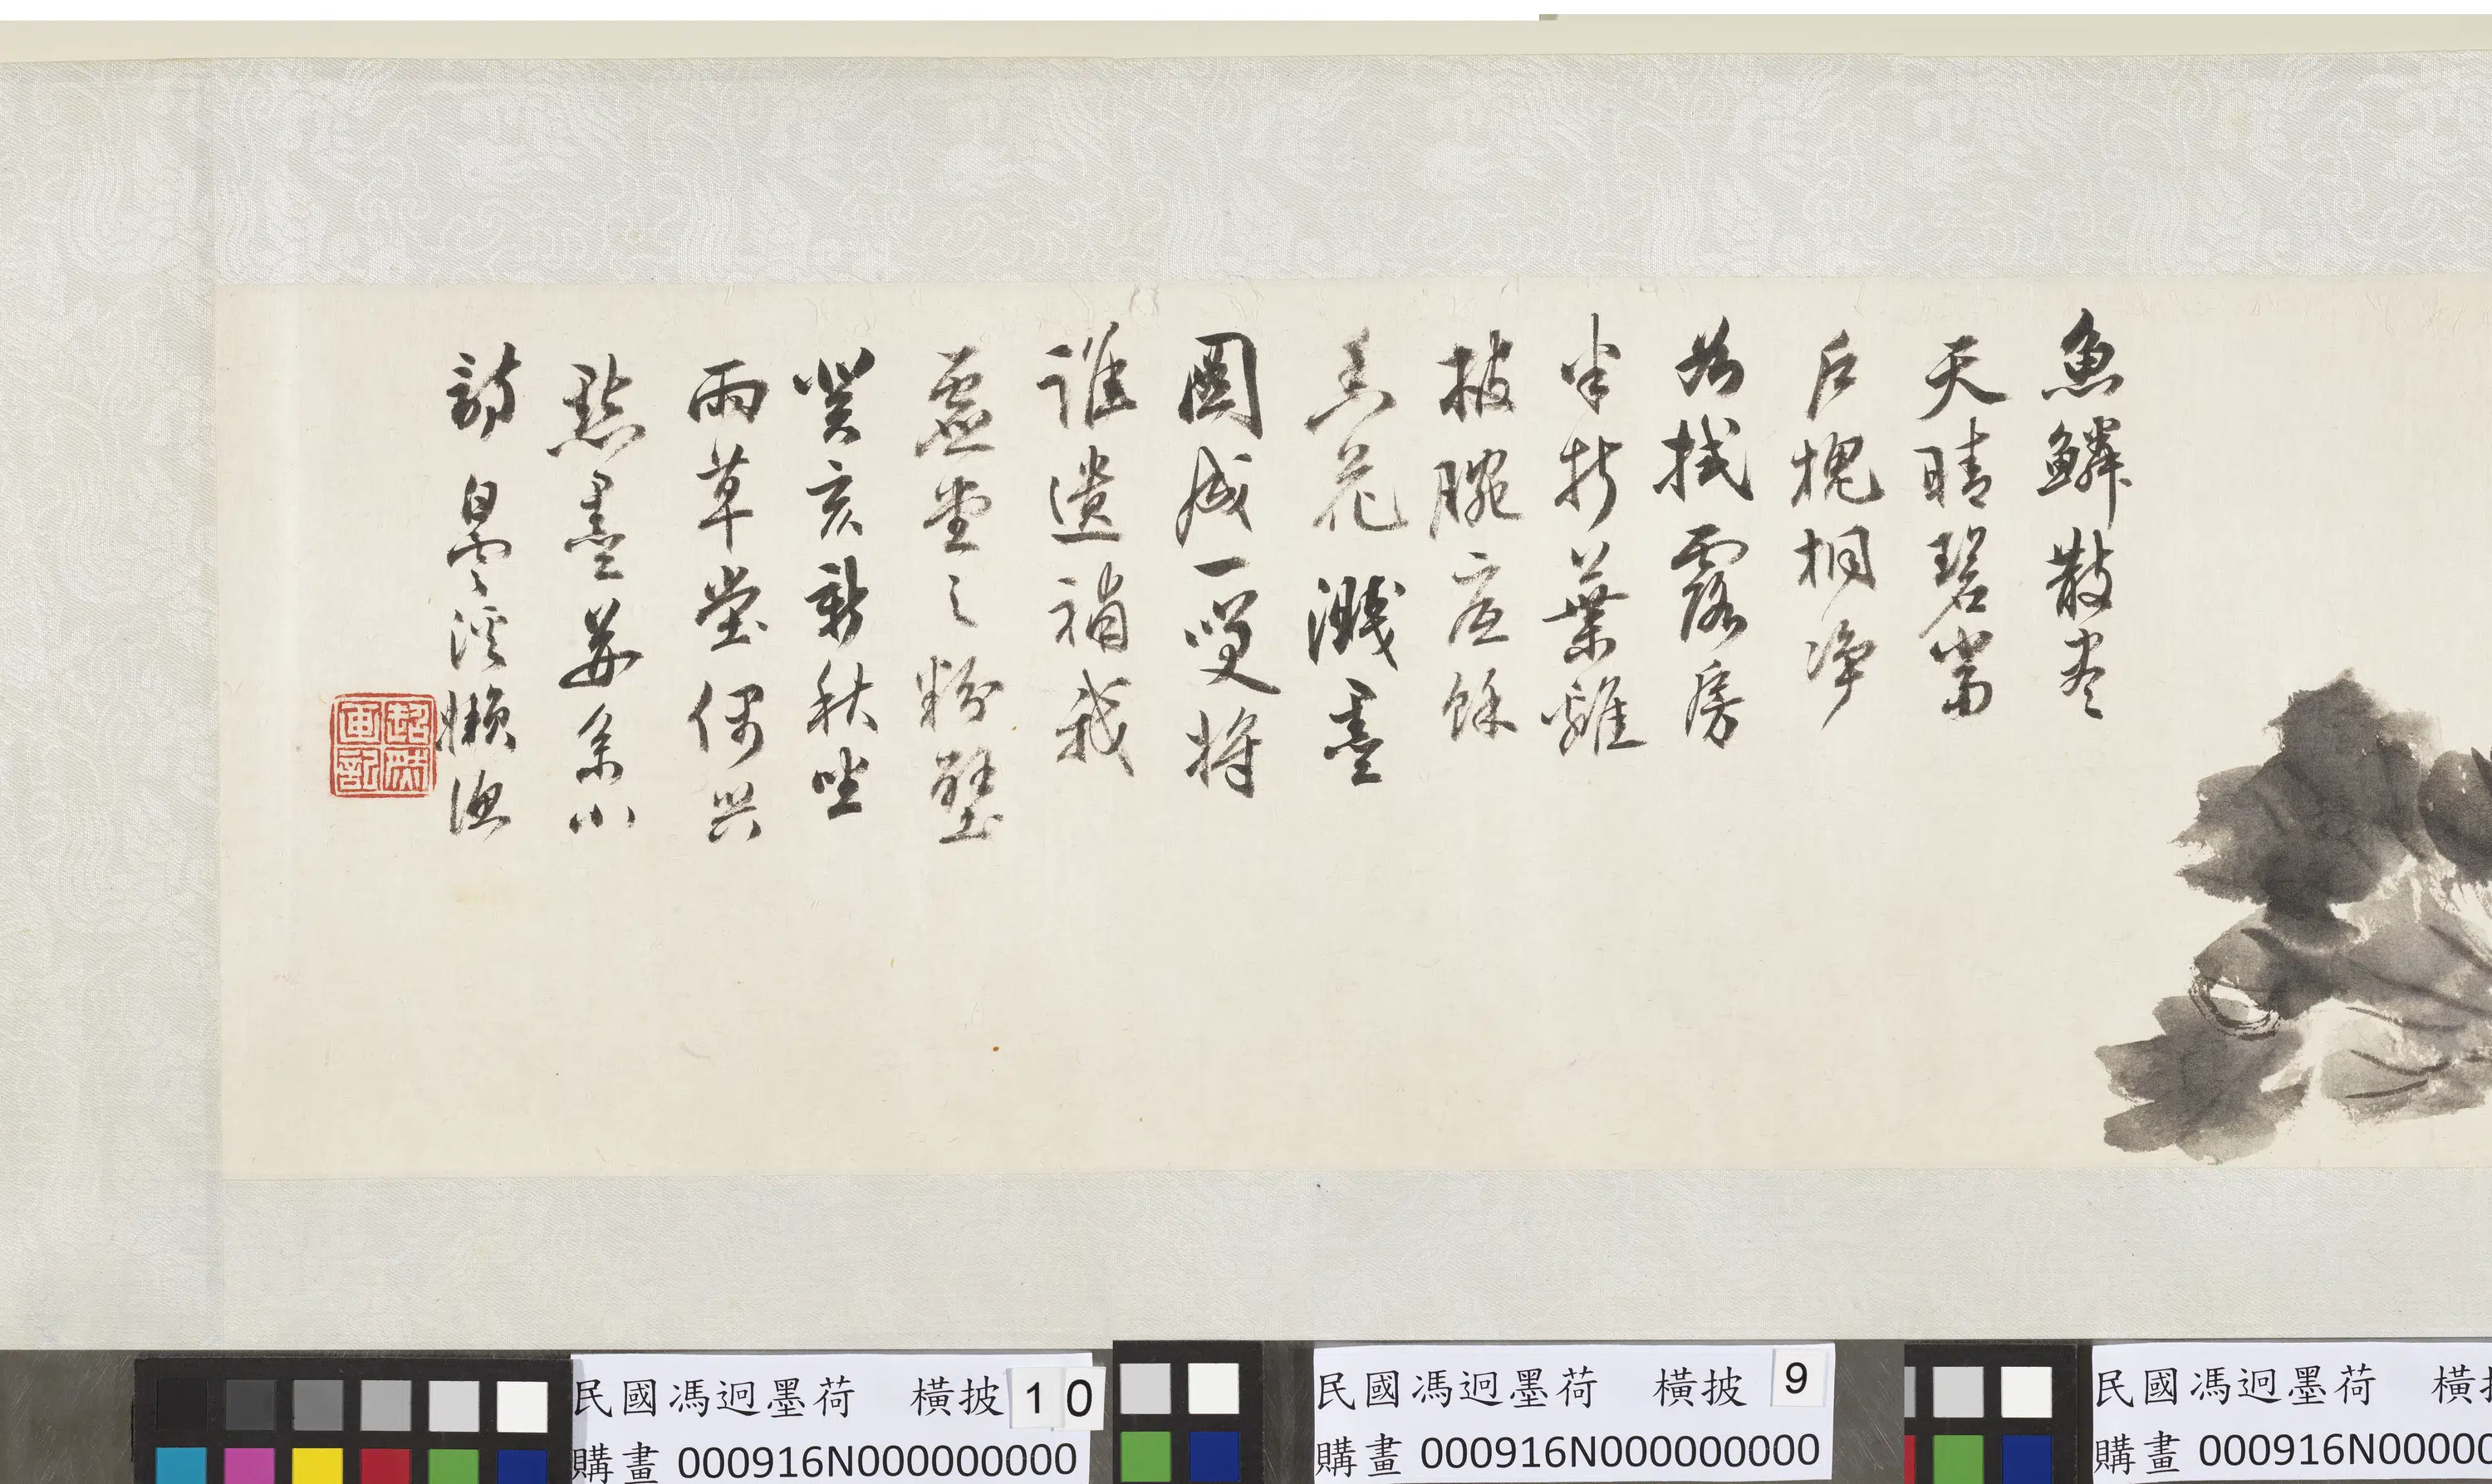 魚鱗散盡
天晴碧當
戶槐桐淨
為拭露房
半折葉離
披腕底餘
香花濺墨
圖成一雙將
誰遺禍我
虛堂之粉壁
癸亥新秋坐
雨草堂偶興
點墨並系小
詩 白雲溪懶漁
民國馮迥墨荷 橫披 10
購畫 000916N000000000
民國馮迥墨荷 橫披 9
購畫 000916N000000000
民國馮迥墨荷 橫
購畫 000916N00000